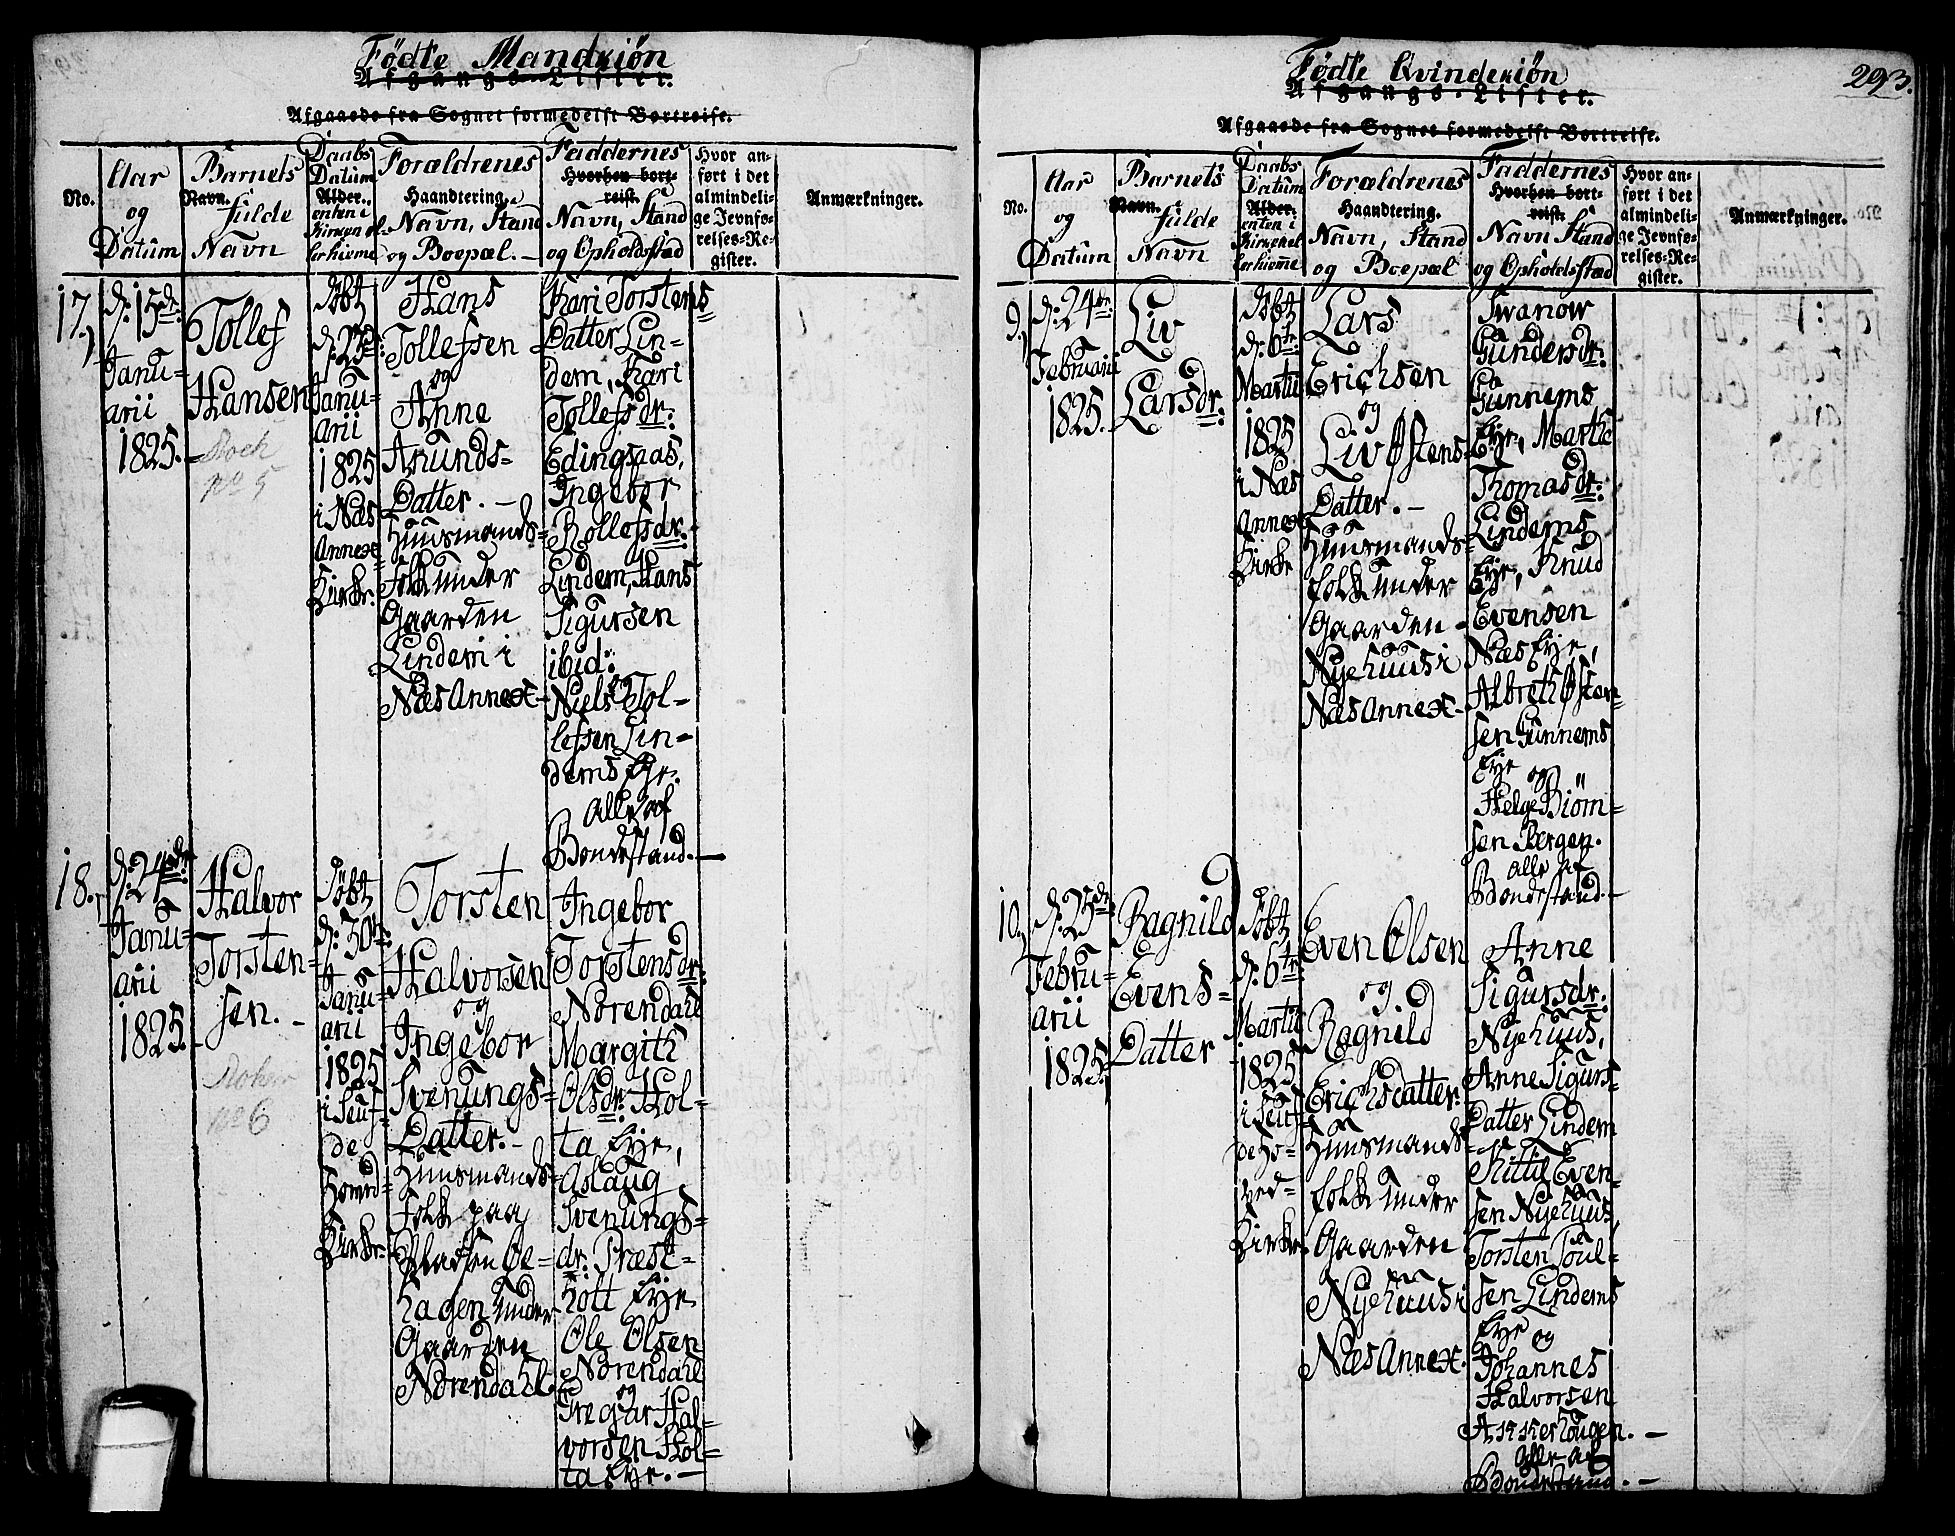 Födte Mandkiön
Afgangs-Lister.
Afgaaede fra Sognet formedelst Bortreise.
No.
Aar
og
Datum
Barnets
Navn.
fulde
Navn
Daabs
Datum
Alder.
enten i
Kirken el.
Foræeldrenes
Haandtering,
Navn, Stand
og Boepæl. -
Faddernes
Hvorhen bort-
reist.
Navn, Stand
og Opholdsstæd
Hvor an-
ført i det
almindeli-
ge Jevnfø-
relses-Re-
gister.
Anmærkninger.
17.
d: 15de
Janu-
arii
1825.
Tollef
Hansen
no 5
Döbt
d: 23de
Janu-
arii
1825
i Næs
Annex
Kirke.
Hans
Tollefsen
og
Anne
Aounds-
Datter. -
Huusmands-
folk under
Gaarden
Lindem i
Næs Annex-
Kari Torstens
Datter Lin-
dem, Kari
Tollefsdr:
Edingsaas,
Ingebor
Rollefsdr:
Lindem, Hans
Sigursen
ibid:
og
Niels Tol-
lefsen Lin-
dems Eje.
alle af
Bondestand. -
18.
d: 24de
Janu-
arii
1825.
Halvor
Torsten-
sen. -
no 6
Döbt
d: 30te
Janu-
arii
1825
i Seuf-
de
Hoved-
Kirke.
Torsten
Halvorsen
og
Ingebor
Svenungs-
Datter. -
Huusmands-
Folk paa
Pladsen Be-
hagen under
Gaarden
Norendahl.
Ingebor
Torstensdr:
Norendahl
Margith
Olsdr: Hol-
ta Eje,
Aslaug
Svenungs-
dr: Præst-
holt Eje
Ole Olsen
Norendahl
og
Tregar Hal-
vorsen Hol-
ta Eje. -
Födte Qvindekiön
293.
Afgangs-Lister.
Afgaaede fra Sognet formedelst Bortreise.
No.
Aar
og
Datum
Barnets
Navn.
fulde
Navn
Daabs
Datum
Alder.
enten i
Kirken el.
Forældrenes
Haandtering.
Navn, Stand
og Boepæl
Faddernes
Hvorhen bort-
reist.
Navn Stand
og Opholdsstæd
Hvor an-
ført i det
almindeli-
ge Jevnfø-
relses-Re-
gister.
Anmærkninger.
9.
d: 24de
Februarii
1825.
Liv
Larsdr:
Döbt
d: 6te
Martii
1825
i Næs
Annex
Kirke
Lars
Erichsen
og
Liv Østens-
Datter. -
Huusmands-
folk under
Gaarden
Nyehuus i
Næs Annex-
Swanow
Gundersdr:
Gunnems
Eje, Marthe
Thomasdr:
Lindems
Eje, Knud
Evensen
Næs Eje,
Albreth Østen-
sen Gunnems
Eje og
Helge Biörn-
sen Bergen.
alle af
Bondestand. -
10.
d: 25de
Febru-
arii
1825.
Ragnild
Evens-
Datter
Döbt
d: 6te
Martii
1825
i Seuf-
de Ho-
ved-
Kirke.
Even Olsen
og
Ragnild
Erichsdatter.
Huusmands-
folk under
Gaarden
Nyehuus i
Næs Annex.
Anne
Sigursdr:
Nyehuus,
Anne Sigurs-
Datter Lindem
Kittil Even-
sen Nyehuus,
Torsten Soul-
sen Lindems
Eje og
Johannes
Halvorsen
Askerhougen. -
alle af
Bondestand. -